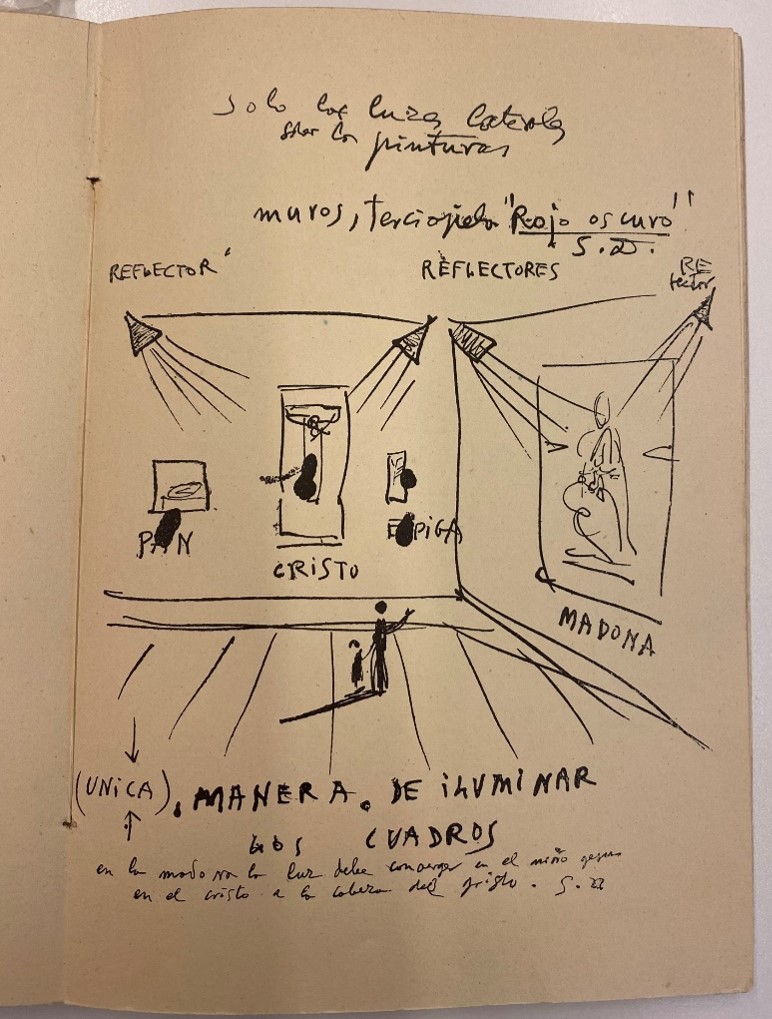 solo las luzes laterales
sobre las pinturas
muros, terciopelo "Rojo oscuro"
S.D.
REFLECTOR
REFLECTORES
RE
flector
PAN
CRISTO
ESPIGA
MADONA
(UNiCA). MANERA. DE iLUMiNAR
LOS CUADROS
en la madona la luz debe converger en el niño gesus
en el cristo a la cabeza del cristo. S.D